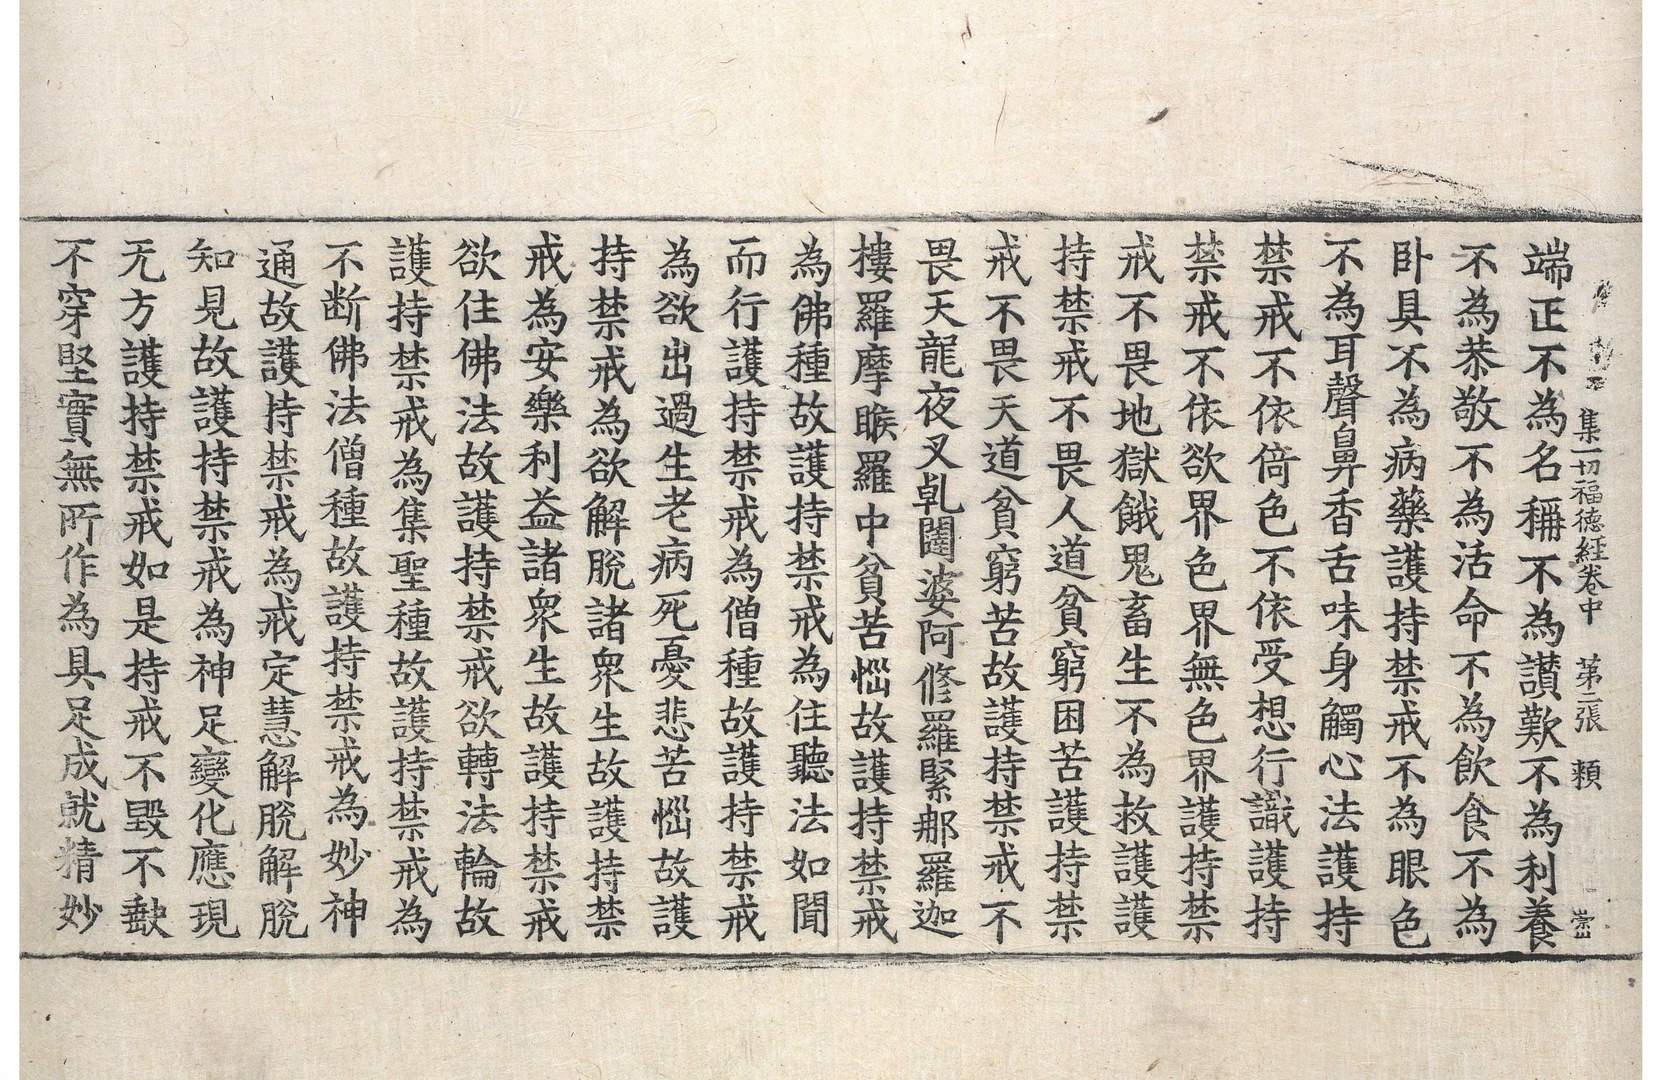 集一切福德經卷中 第二張 頼 崇
端正不為名稱不為讃歎不為利養
不為恭敬不為活命不為飲食不為
卧具不為病藥護持禁戒不為眼色
不為耳聲鼻香舌味身觸心法護持
禁戒不依倚色不依受想行識護持
禁戒不依欲界色界無色界護持禁
戒不畏地獄餓鬼畜生不為救護護
持禁戒不畏人道貧窮困苦護持禁
戒不畏天道貧窮苦故護持禁戒不
畏天龍夜叉乹闥婆阿脩羅緊那羅迦
樓羅摩睺羅中貧苦惱故護持禁戒
為佛種故護持禁戒為住聽法如聞
而行護持禁戒為僧種故護持禁戒
為欲出過生老病死憂悲苦惱故護
持禁戒為欲解脫諸衆生故護持禁
戒為安樂利益諸衆生故護持禁戒
欲住佛法故護持禁戒欲轉法輪故
護持禁戒為集聖種故護持禁戒為
不断佛法僧種故護持禁戒為妙神
通故護持禁戒為戒定慧解脫解脫
知見故護持禁戒為神足變化應現
无方護持禁戒如是持戒不毀不缺
不穿堅實無所作為具足成就精妙